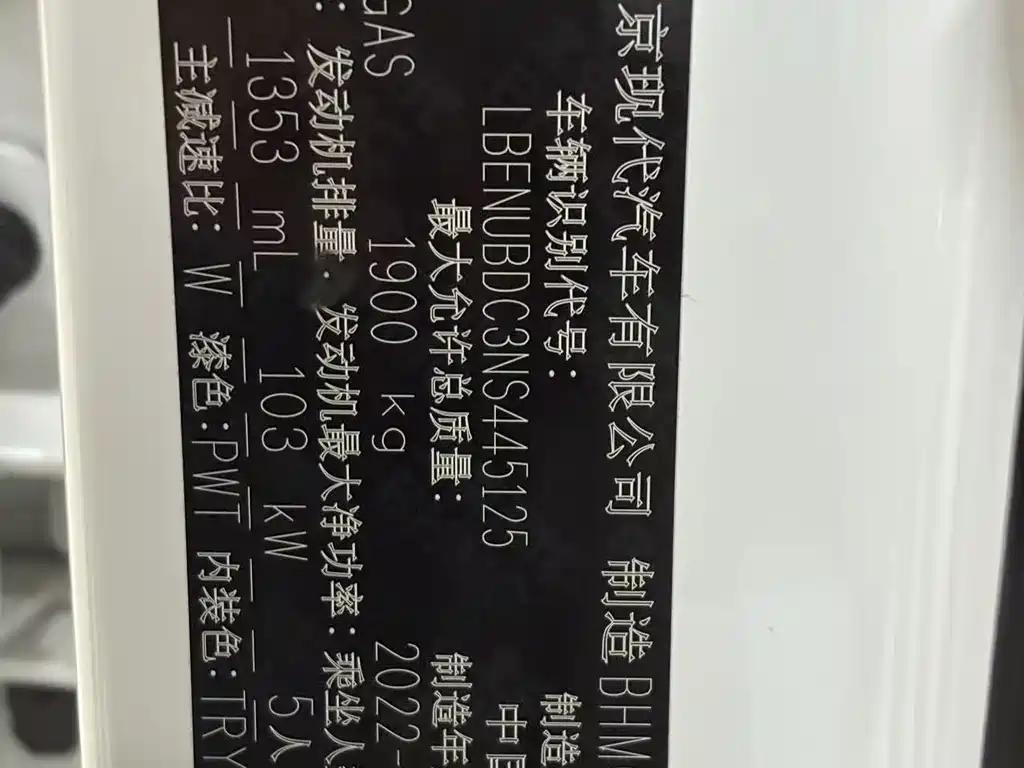 京现代汽车有限公司 制造 BHM
车辆识别代号: 制造
LBENUBDC3NS445125 中国
最大允许总质量: 制造年
1900 kg 2022-
GAS
发动机排量: 发动机最大净功率: 乘坐人
1353 mL 103 kW 5人
主减速比: W 漆色:PWT 内装色:TRY